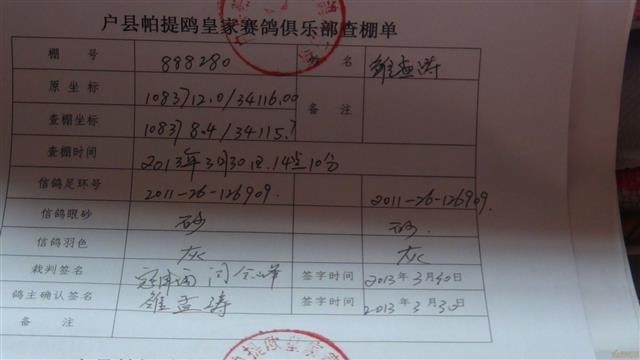 户县帕提鸥皇家赛鸽俱乐部查棚单
棚号 888280 名
原坐标 108371 2.0/34116.00 备注
查棚坐标 10837 8.4/34115.7
查棚时间 2013年3月30日.14点10分
信鸽足环号 2011-26-126909. 2011-26-126909.
信鸽眼砂 砂 砂.
信鸽羽色 灰 灰
裁判签名 签字时间 2013年3月30日
鸽主确认签名 签字时间 2013年3月30日
备注